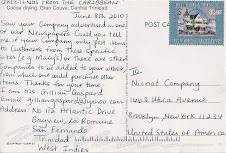 GREETINGS FROM THE CARIBBEAN
Cocoa drying, Gran Couva, Central Trinidad
June 8th, 2010
Saw your Company advertised in one
of our Newspapers. Could you tell
me if your Company only post items
to Customers from these Specific
(e.g. Macy's) or there are other
Companies to be added to your
from which one could purchase other
items. Thanks for your time
from Ms. Gillian Gaspard
Email gilliangaspard@yahoo.com
Address: No. 1a Atlantic Drive
Bayview, La Romaine
San Fernando
Trinidad
West Indies
POST CARD
To:
Nicnat Company
Utica Avenue
Brooklyn New York 11234
United States of America